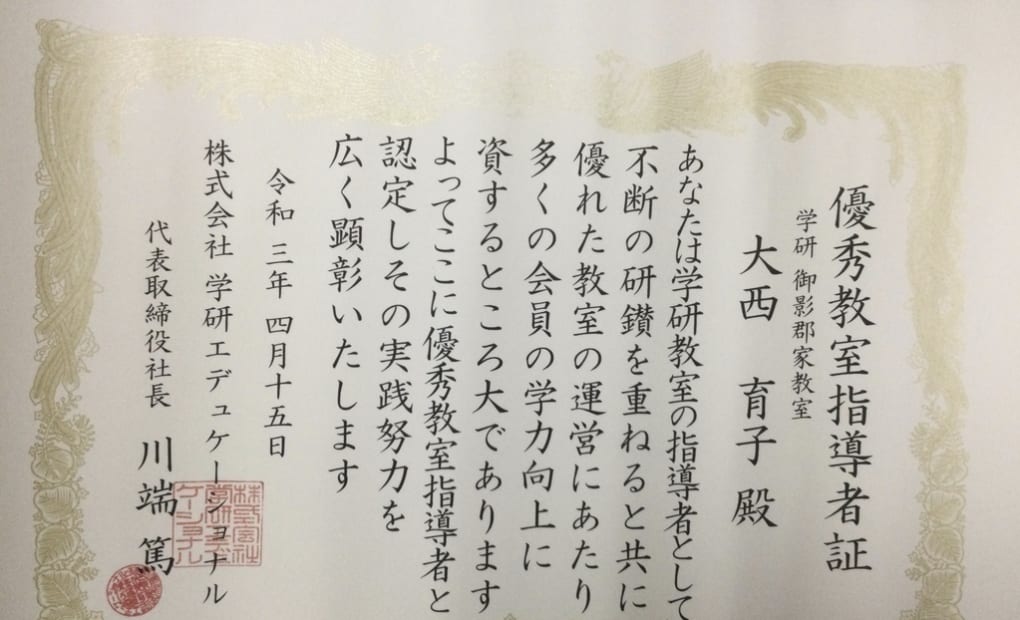 優秀教室指導者証
学研 御影郡家教室
大西 育子 殿
あなたは学研教室の指導者として
不断の研鑽を重ねると共に
優れた教室の運営にあたり
多くの会員の学力向上に
資するところ大であります
よってここに優秀教室指導者と
認定しその実践努力を
広く顕彰いたします
令和三年四月十五日
株式会社 学研エデュケーショナル
代表取締役社長 川端 篤
株式会社
学研エデュ
ケーショナル